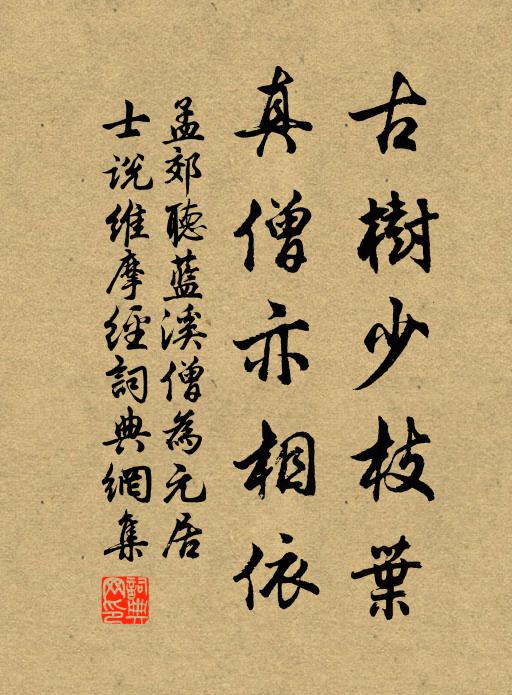 古樹少枝葉
真僧亦相依
孟郊聽藍溪僧為元居
士説維摩經詞典網集
詞典网印